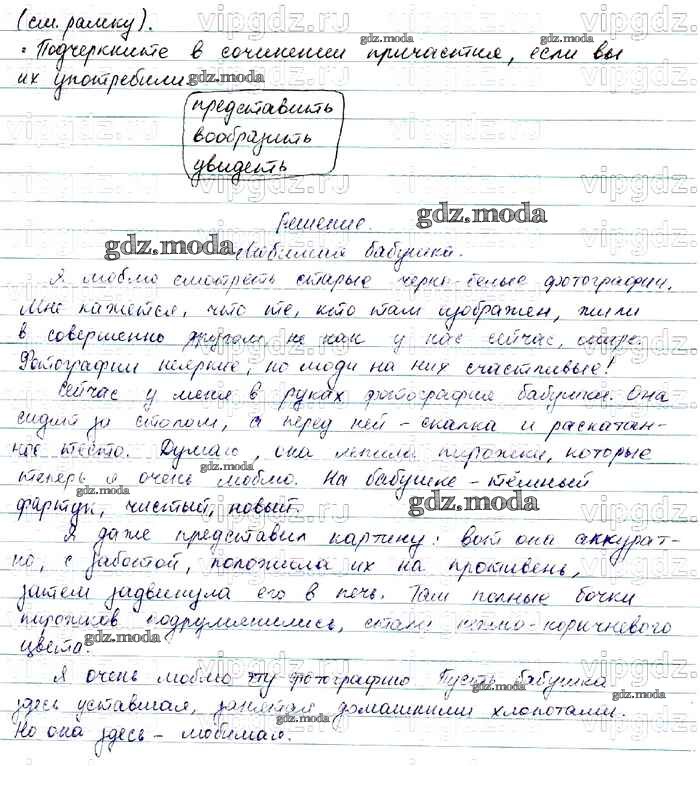 (см. рамку).
• Подчеркните в сочинении причастия, если вы
их употребили.
представить
вообразить
увидеть
Решение.
Любимая бабушка.
Я люблю смотреть старые черно-белые фотографии.
Мне кажется, что те, кто там изображен, жили
в совершенно другом, не как у нас сейчас, мире.
Фотографии неяркие, но люди на них счастливые!
Сейчас у меня в руках фотография бабушки. Она
сидит за столом, а перед ней - скалка и раскатан-
ное тесто. Думаю, она лепила пирожки, которые
теперь я очень люблю. На бабушке - тёмный
фартук, чистый, новый.
Я даже представил картину: вот она аккурат-
но, с заботой, положила их на противень,
затем задвинула его в печь. Там полные бочки
пирожков подрумянились, стали темно-коричневого
цвета.
Я очень люблю эту фотографию. Пусть бабушка
здесь уставшая, занятая домашними хлопотами.
Но она здесь - любимая.
gdz.moda
vipgdz.ru